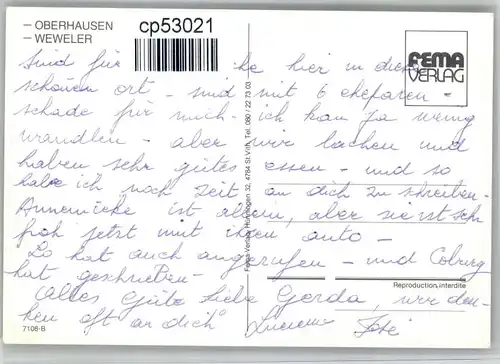 - OBERHAUSEN
- WEWELER
cp53021
FEMA
VERLAG
Sind für ... hier in diese
schönen ort - sind mit 6 eheparen -
schade für mich - ich kan ja wenig
wandlen - aber wir lachen und
haben sehr gutes essen - und so
habe ich noch Zeit an dich zu schreiben.
Annemieke ist allein, aber sie ist sehr
froh jetzt mit ihren auto -
Lo hat auch angerufen - und Coburg
hat geschrieben -
Alles Gute liebe Gerda, wir den-
ken oft an dich"
Fema-Verlag Hünningen 32, 4784 St. Vith, Tel. 080 / 22 73 03
Reproduction interdite
7108-B